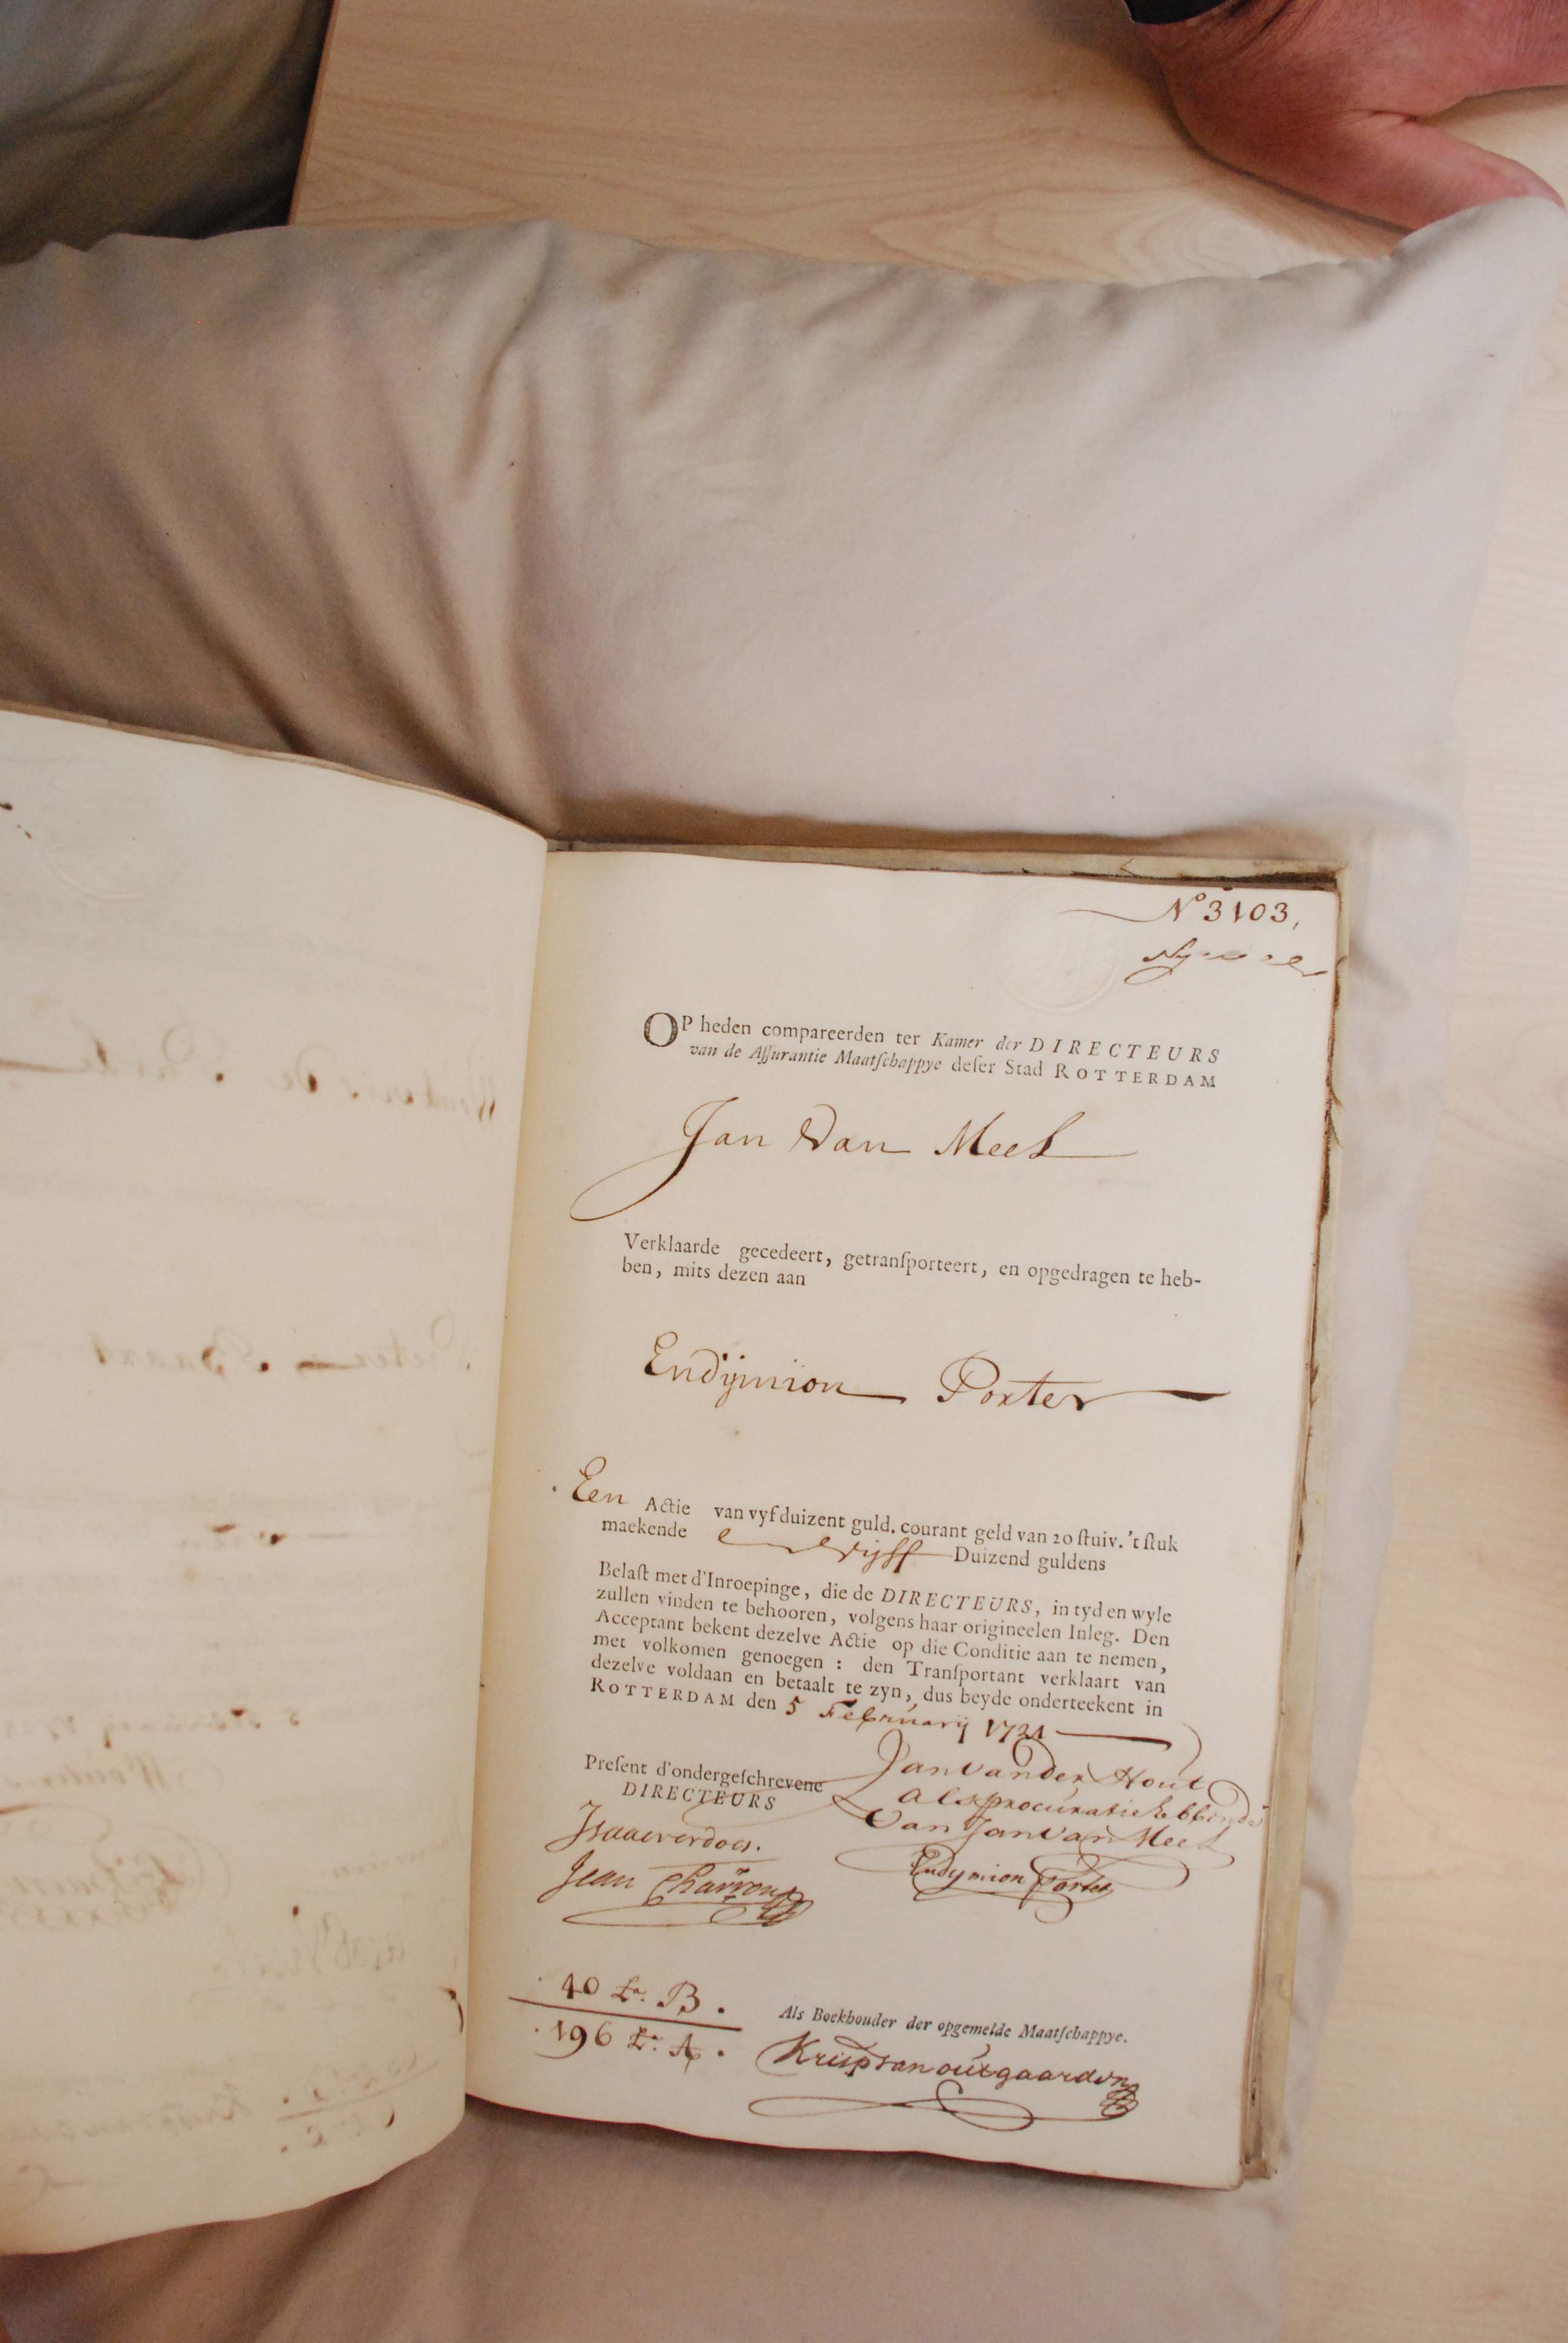 N.º 3103,
OP heden compareerden ter Kamer der DIRECTEURS
van de Aſſurantie Maatſchappye deſer Stad ROTTERDAM
Jan Van Meel
Verklaarde gecedeert, getranſporteert, en opgedragen te heb-
ben, mits dezen aan
Endÿmion Porter
Een Actie van vyf duizent guld. courant geld van 20 ſtuiv. 't ſtuk
maekende vijff Duizend guldens
Belaſt met d'Inroepinge, die de DIRECTEURS, in tyd en wyle
zullen vinden te behooren, volgens haar origineelen Inleg. Den
Acceptant bekent dezelve Actie op die Conditie aan te nemen,
met volkomen genoegen : den Tranſportant verklaart van
dezelve voldaan en betaalt te zyn, dus beyde onderteekent in
ROTTERDAM den 5 Februarij 1721
Preſent d'ondergeſchrevene
DIRECTEURS
Isaac verdoes.
Jean Charron
Jan van der Hout
als procuratie hebbende
van Jan van Meel
Endymion Porter
40 Lª. B.
196 Lª. A.
Als Boekhouder der opgemelde Maatſchappye.